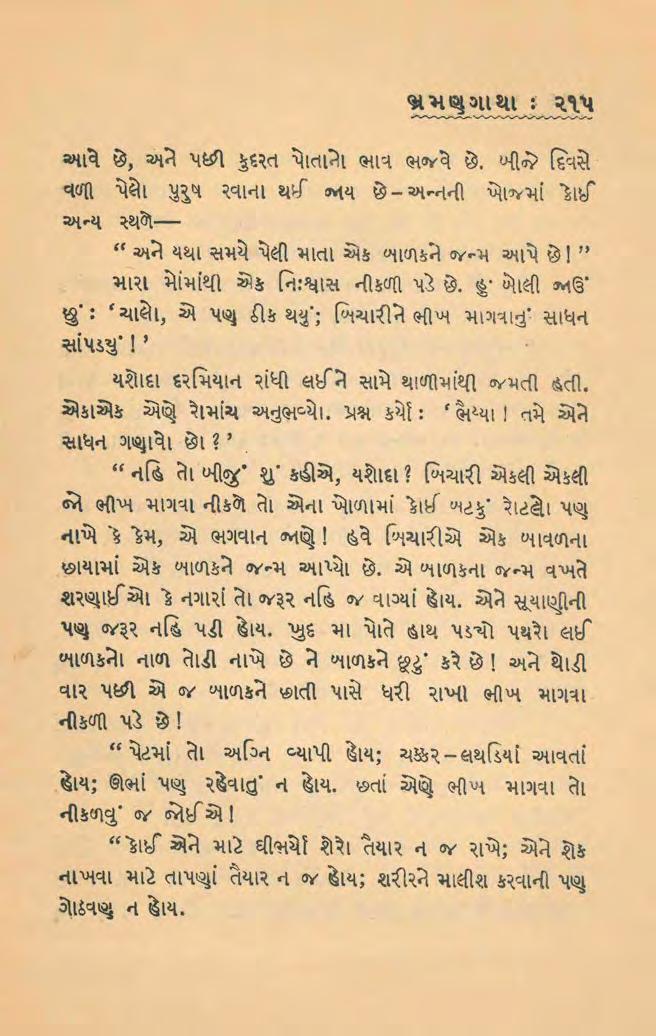 ભ્રમણગાથા : ૨૧૫
આવે છે, અને પછી કુદરત પોતાનો ભાવ ભજવે છે. બીજે દિવસે
વળી પેલો પુરુષ રવાના થઈ જાય છે – અન્નની ખોજમાં કોઈ
અન્ય સ્થળે—
“ અને યથા સમયે પેલી માતા એક બાળકને જન્મ આપે છે! ”
મારા મોંમાંથી એક નિઃશ્વાસ નીકળી પડે છે. હું બોલી જાઉં
છું : ‘ ચાલો, એ પણ ઠીક થયું; બિચારીને ભીખ માગવાનું સાધન
સાંપડયું ! ’
યશોદા દરમિયાન રાંધી લઈને સામે થાળીમાંથી જમતી હતી.
એકાએક એણે રોમાંચ અનુભવ્યો. પ્રશ્ન કર્યો : ‘ ભૈય્યા ! તમે એને
સાધન ગણાવો છો ? ’
“ નહિ તો બીજું શું કહીએ, યશોદા? બિચારી એકલી એકલી
જો ભીખ માગવા નીકળે તો એના ખોળામાં કોઈ બટકું રોટલો પણ
નાખે કે કેમ, એ ભગવાન જાણે! હવે બિચારીએ એક બાવળના
છાયામાં એક બાળકને જન્મ આપ્યો છે. એ બાળકના જન્મ વખતે
શરણાઈઓ કે નગારાં તો જરૂર નહિ જ વાગ્યાં હોય. એને સૂયાણીની
પણ જરૂર નહિ પડી હોય. ખુદ મા પોતે હાથ પડચો પથરો લઈ
બાળકનો નાળ તોડી નાખે છે ને બાળકને છૂટું કરે છે! અને થોડી
વાર પછી એ જ બાળકને છાતી પાસે ધરી રાખી ભીખ માગવા
નીકળી પડે છે!
“ પેટમાં તો અગ્નિ વ્યાપી હોય; ચક્કર – લથડિયાં આવતાં
હોય; ઊભાં પણ રહેવાતું ન હોય. છતાં એણે ભીખ માગવા તો
નીકળવું જ જોઈએ!
“ કોઈ એને માટે ઘીભર્યો શેરો તૈયાર ન જ રાખે; એને શેક
નાખવા માટે તાપણાં તૈયાર ન જ હોય; શરીરને માલીશ કરવાની પણ
ગોઠવણ ન હોય.